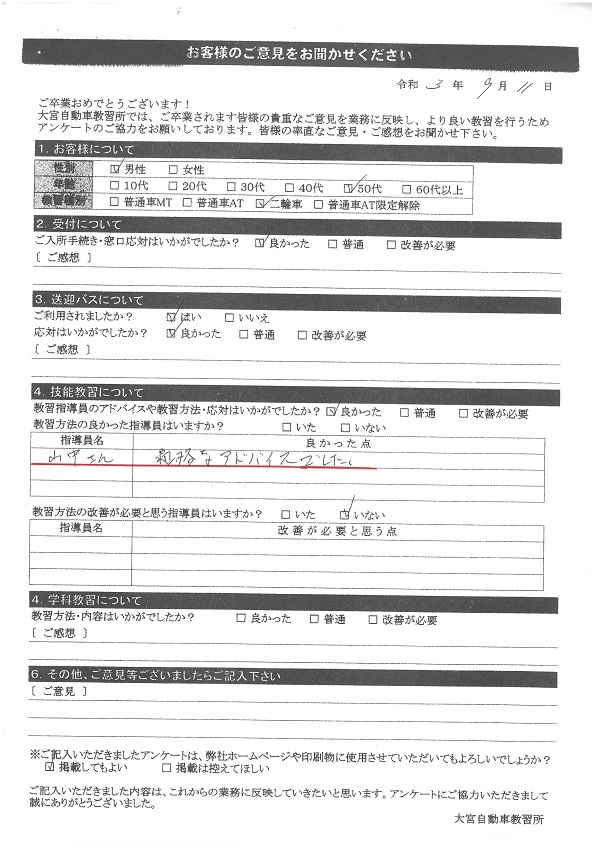 お客様のご意見をお聞かせください
令和 3 年 9 月 11 日
ご卒業おめでとうございます！
大宮自動車教習所では、ご卒業されます皆様の貴重なご意見を業務に反映し、より良い教習を行うため
アンケートのご協力をお願いしております。皆様の率直なご意見・ご感想をお聞かせ下さい。
1. お客様について
性別 ☑ 男性 □ 女性
年齢 □ 10代 □ 20代 □ 30代 □ 40代 ☑ 50代 □ 60代以上
教習種別 □ 普通車MT □ 普通車AT ☑ 二輪車 □ 普通車AT限定解除
2. 受付について
ご入所手続き・窓口応対はいかがでしたか？ ☑ 良かった □ 普通 □ 改善が必要
〔 ご感想 〕
3. 送迎バスについて
ご利用されましたか？ ☑ はい □ いいえ
応対はいかがでしたか？ ☑ 良かった □ 普通 □ 改善が必要
〔 ご感想 〕
4. 技能教習について
教習指導員のアドバイスや教習方法・応対はいかがでしたか？ ☑ 良かった □ 普通 □ 改善が必要
教習方法の良かった指導員はいますか？ □ いた □ いない
指導員名 良かった点
山中さん なアドバイスでした。
教習方法の改善が必要と思う指導員はいますか？ □ いた ☑ いない
指導員名 改善が必要と思う点
4. 学科教習について
教習方法・内容はいかがでしたか？ □ 良かった □ 普通 □ 改善が必要
〔 ご感想 〕
6. その他、ご意見等ございましたらご記入下さい
〔 ご意見 〕
※ご記入いただきましたアンケートは、弊社ホームページや印刷物に使用させていただいてもよろしいでしょうか？
☑ 掲載してもよい □ 掲載は控えてほしい
ご記入いただきました内容は、これからの業務に反映していきたいと思います。アンケートにご協力いただきまして
誠にありがとうございました。
大宮自動車教習所